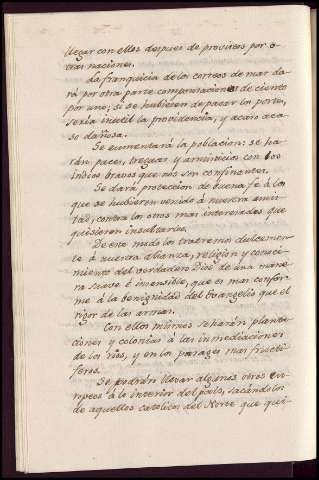 llegar con ellos despues de provistos por o-
tras naciones.
La franquicia de los correos de mar da-
rá por otra parte compensaciones de ciento
por uno; si se hubiesen de pagar los portes,
sería inutil la providencia, y acaso aca-
so dañosa.
Se aumentará la poblacion: se ha-
rán paces, treguas y armisticios con los
indios bravos que nos son confinantes.
Se dará proteccion de buena fé á los
que se hubieren venido á nuestra amis-
tad, contra los otros mas internados que
quisieren insultarlos.
De este modo los traheremos dulcemen-
te á nuestra alianza, religion y conoci-
miento del verdadero Dios de una mane-
ra suave é insensible, que es mas confor-
me á la benignidad del Evangelio que el
rigor de las armas.
Con ellos mismos se harán planta-
ciones y colonias á las inmediaciones
de los rios, y en los parages mas fructi-
feros.
Se podrán llevar algunos otros eu-
ropeos á lo interior del país, sacandolos
de aquellos catolicos del Norte que qui-